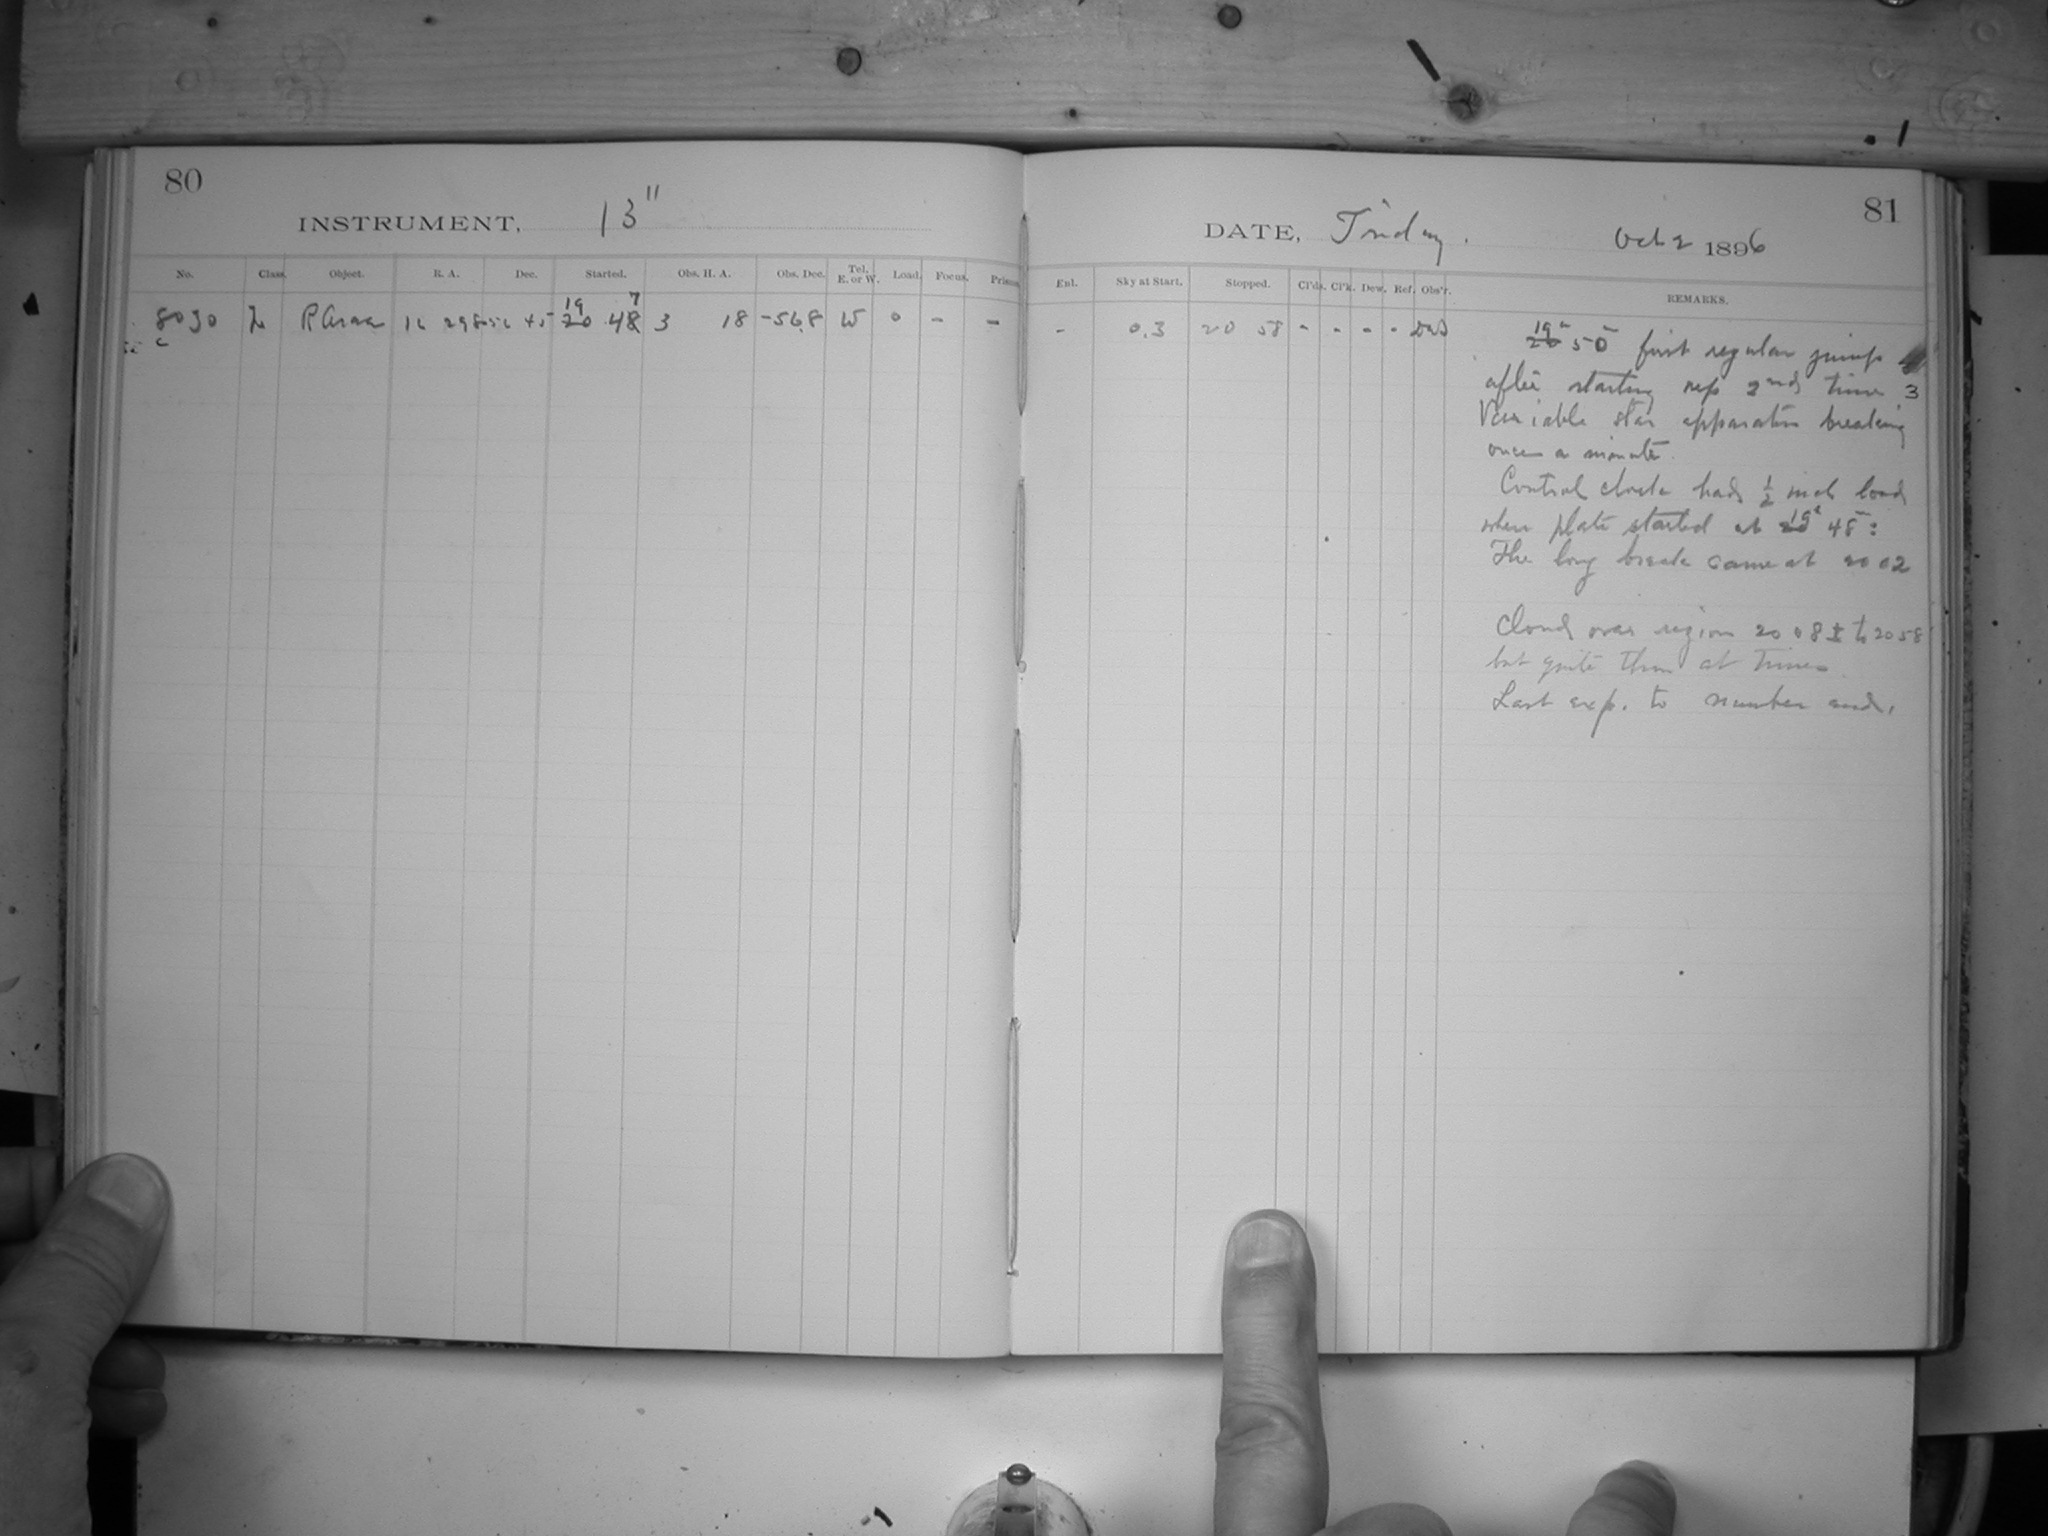 80
INSTRUMENT, 13"
No. Class. Object. R. A. Dec. Started. Obs. H. A. Obs. Dec. Tel. E. or W. Load. Focus. Prism
19 7
8030 R Arae 16 29 8 -56 45 20 48 3 18 -56.8 W 0 - -
c
81
DATE, Friday. Oct 2 1896
Enl. Sky at Start. Stopped. Cl'ds. Cl'k. Dew. Ref. Obs'r. REMARKS.
- 0.3 20 58 - - - -
19 20 50 first regular jump
after starting 2nd time 3
Variable star apparatus breaking
once a minute.
Control clock had ½ inch load
when plate started at 20 19 48:
The long break came at 20 02
Cloud over region 20 08 ± to 20 58
but quite thin at times.
Last exp. to number end.